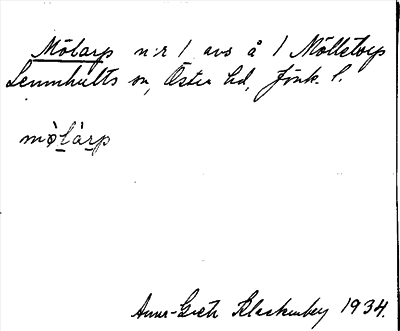 Mölarp n:r 1 avs å 1 Mölletorp
Lemnhults sn, Östra hd, Jönk. l.
mò̀làrp
Anna-Greta Blackenberg 1934.